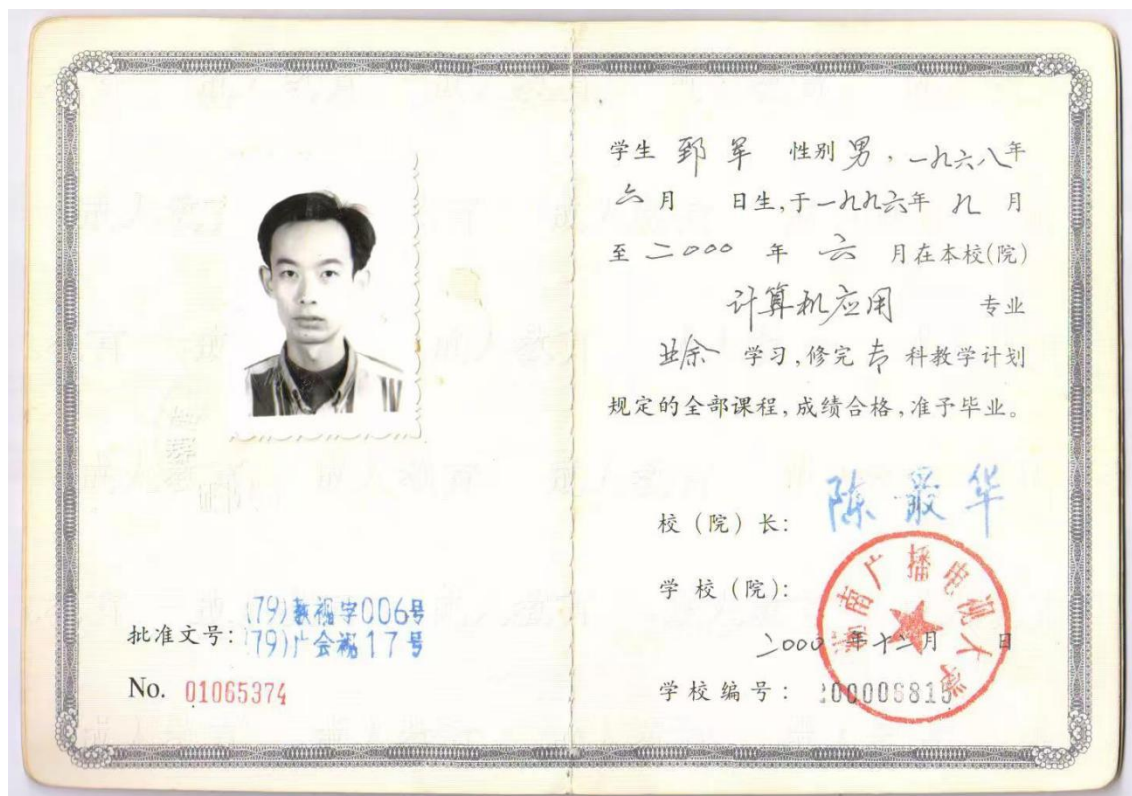 批准文号:(79)教视字006号
(79)广会视17号
No. 01065374
学生 郅军 性别 男,一九六八年
六月 日生,于一九九六年 九 月
至 二000 年 六 月在本校(院)
计算机应用 专业
业余 学习,修完 专 科教学计划
规定的全部课程,成绩合格,准予毕业。
校(院)长:
学校(院):
南广播电视大学
二000 年十二月 日
学校编号: